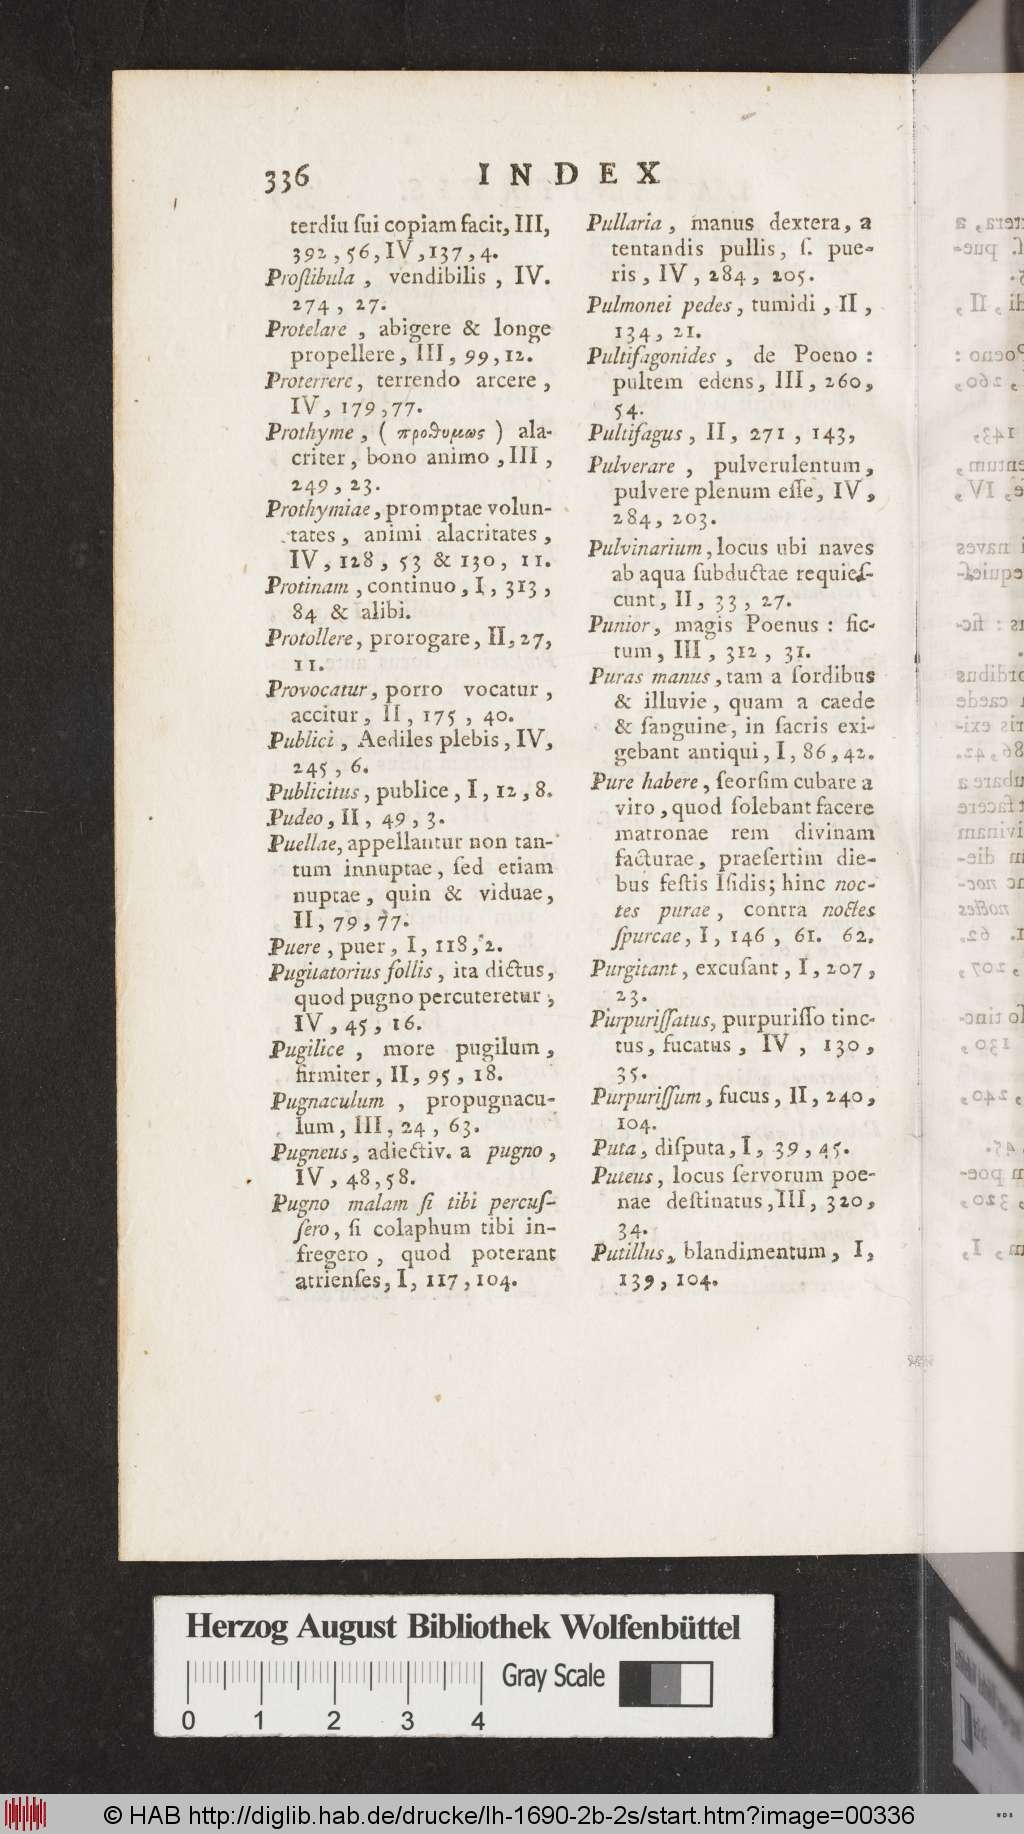 336
INDEX
terdiu ſui copiam facit, III,
392, 56, IV, 137, 4.
Proſtibula, vendibilis, IV.
274, 27.
Protelare, abigere & longe
propellere, III, 99, 12.
Proterrere, terrendo arcere,
IV, 179, 77.
Prothyme, (προθυμως) ala-
criter, bono animo, III,
249, 23.
Prothymiae, promptae volun-
tates, animi alacritates,
IV, 128, 53 & 130, 11.
Protinam, continuo, I, 313,
84 & alibi.
Protollere, prorogare, II, 27,
11.
Provocatur, porro vocatur,
accitur, II, 175, 40.
Publici, Aediles plebis, IV,
245, 6.
Publicitus, publice, I, 12, 8.
Pudeo, II, 49, 3.
Puellae, appellantur non tan-
tum innuptae, ſed etiam
nuptae, quin & viduae,
II, 79, 77.
Puere, puer, I, 118, 2.
Pugilatorius follis, ita dictus,
quod pugno percuteretur,
IV, 45, 16.
Pugilice, more pugilum,
firmiter, II, 95, 18.
Pugnaculum, propugnacu-
lum, III, 24, 63.
Pugneus, adiectiv. a pugno,
IV, 48, 58.
Pugno malam ſi tibi percuſ-
ſero, ſi colaphum tibi in-
fregero, quod poterant
atrienſes, I, 117, 104.
Pullaria, manus dextera, a
tentandis pullis, ſ. pue-
ris, IV, 284, 205.
Pulmonei pedes, tumidi, II,
134, 21.
Pultifagonides, de Poeno:
pultem edens, III, 260,
54.
Pultifagus, II, 271, 143,
Pulverare, pulverulentum,
pulvere plenum eſſe, IV,
284, 203.
Pulvinarium, locus ubi naves
ab aqua ſubductae requieſ-
cunt, II, 33, 27.
Punior, magis Poenus: fic-
tum, III, 312, 31.
Puras manus, tam a ſordibus
& illuvie, quam a caede
& ſanguine, in ſacris exi-
gebant antiqui, I, 86, 42.
Pure habere, ſeorſim cubare a
viro, quod ſolebant facere
matronae rem divinam
facturae, praeſertim die-
bus feſtis Iſidis; hinc noc-
tes purae, contra noctes
ſpurcae, I, 146, 61. 62.
Purgitant, excuſant, I, 207,
23.
Purpuriſſatus, purpuriſſo tinc-
tus, fucatus, IV, 130,
35.
Purpuriſſum, fucus, II, 240,
104.
Puta, diſputa, I, 39, 45.
Puteus, locus ſervorum poe-
nae deſtinatus, III, 320,
34.
Putillus, blandimentum, I,
139, 104.
Herzog August Bibliothek Wolfenbüttel
Gray Scale
0 1 2 3 4
© HAB http://diglib.hab.de/drucke/lh-1690-2b-2s/start.htm?image=00336